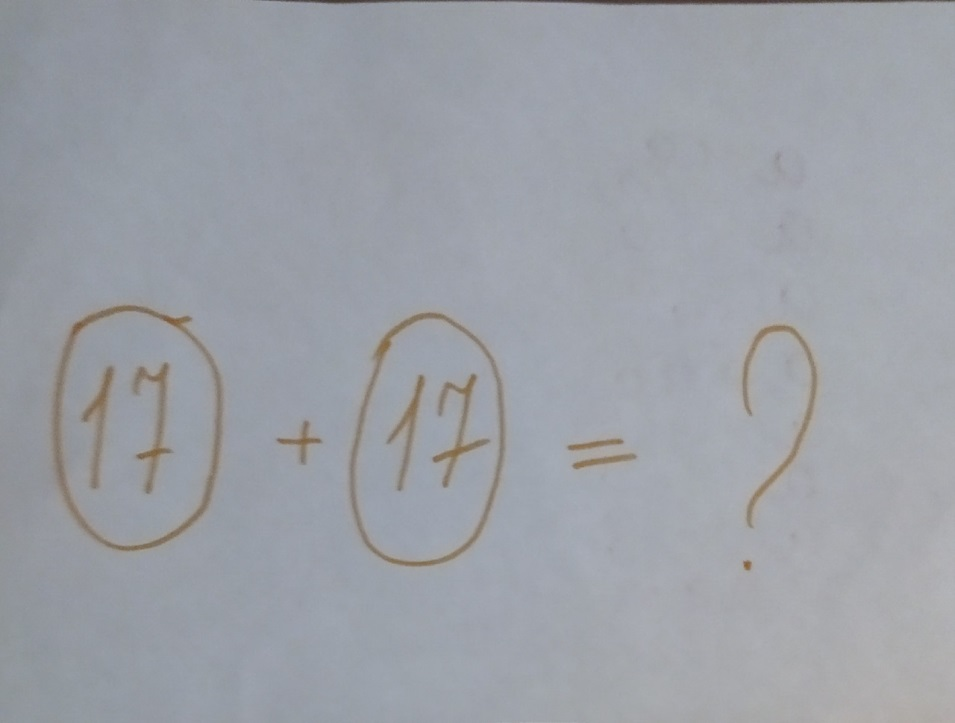 17 + 17 = ?